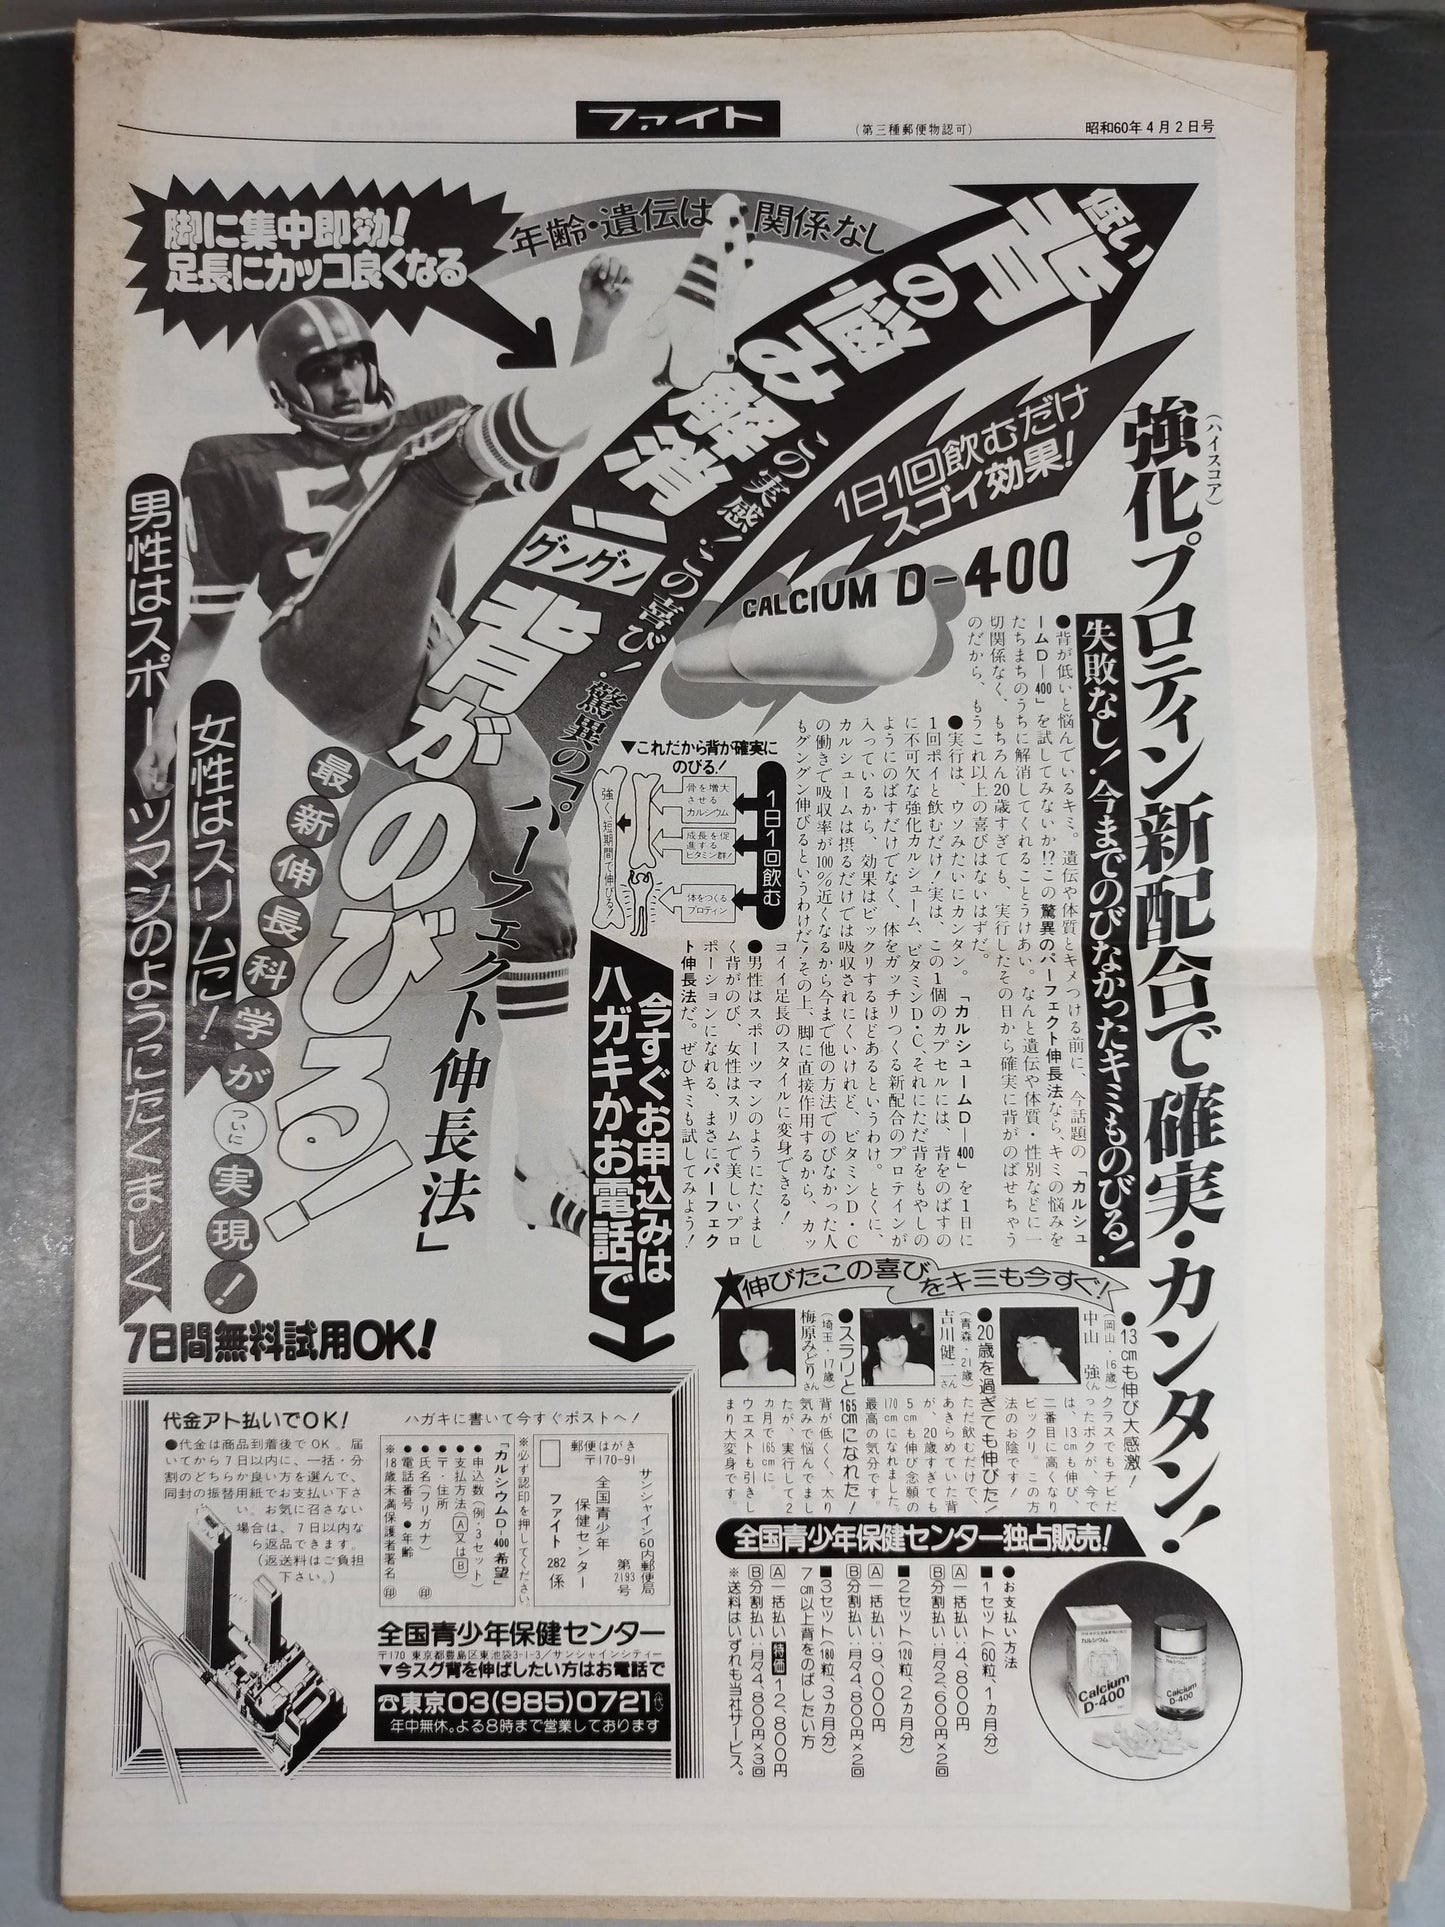 ファイト
(第三種郵便物認可)
昭和60年4月2日号
脚に集中即効!
足長にカッコ良くなる
年齢・遺伝は関係なし
低い背の悩み解消!!
この実感!この喜び!
グングン
背がのびる!
驚異の「パーフェクト伸長法」
1日1回飲むだけ
スゴイ効果!
CALCIUM D-400
(ハイスコア)
強化プロティン新配合で確実・カンタン!
失敗なし!今までのびなかったキミものびる!
●背が低いと悩んでいるキミ。遺伝や体質とキメつける前に、今話題の「カルシュ
ームD―400」を試してみないか!?この驚異のパーフェクト伸長法なら、キミの悩みを
たちまちのうちに解消してくれることうけあい。なんと遺伝や体質・性別などに一
切関係なく、もちろん20歳すぎても、実行したその日から確実に背がのばせちゃう
のだから、もうこれ以上の喜びはないはずだ。
●実行は、ウソみたいにカンタン。「カルシュームD―400」を1日に
1回ポイと飲むだけ!実は、この1個のカプセルには、背をのばすの
に不可欠な強化カルシューム、ビタミンD・C、それにただ背をもやしの
ようにのばすだけでなく、体をガッチリつくる新配合のプロティンが
入っているから、効果はビックリするほどあるというわけ。とくに、
カルシュームは摂るだけでは吸収されにくいけれど、ビタミンD・C
の働きで吸収率が100%近くなるから今まで他の方法でのびなかった人
もグングン伸びるというわけだ!その上、脚に直接作用するから、カッ
コイイ足長のスタイルに変身できる!
●男性はスポーツマンのようにたくまし
く背がのび、女性はスリムで美しいプロ
ポーションになれる、まさにパーフェク
ト伸長法だ。ぜひキミも試してみよう!
▼これだから背が確実に
のびる!
1日1回飲む
骨を増大
させる
カルシウム
成長を促
進する
ビタミン群!
体をつくる
プロティン
強く、短期間で伸びる!
男性はスポーツマンのようにたくましく
女性はスリムに!
最新伸長科学がついに実現!
今すぐお申込みは
ハガキかお電話で
★伸びたこの喜びをキミも今すぐ!
●13cmも伸び大感激!
(岡山・16歳)
中山 強くん
クラスでもチビだ
ったボクが、今で
は、13cmも伸び、
二番目に高くなり
ビックリ。この方
法のお陰です!
●20歳を過ぎても伸びた!
(青森・21歳)
吉川健二さん
ただ飲むだけで、
あきらめていた背
が、20歳すぎても
5cmも伸び念願の
170cmになれました。
最高の気分です。
●スラリと165cmになれた!
(埼玉・17歳)
梅原みどりさん
背が低く、太り
気みで悩んでまし
たが、実行して2
カ月で165cmに。
ウエストも引きし
まり大変身です。
全国青少年保健センター独占販売!
●お支払い方法
■1セット(60粒、1カ月分)
A一括払い:4,800円
B分割払い:月々2,600円×2回
■2セット(120粒、2カ月分)
A一括払い:9,000円
B分割払い:月々4,800円×2回
■3セット(180粒、3カ月分)
7cm以上背をのばしたい方
A一括払い 特価 12,800円
B分割払い:月々4,800円×3回
※送料はいずれも当社サービス。
カルシウム
Calcium
D-400
Calcium
D-400
7日間無料試用OK!
代金アト払いでOK!
●代金は商品到着後でOK。届
いてから7日以内に、一括・分
割のどちらか良い方を選んで、
同封の振替用紙でお支払い下さ
い。お気に召さない
場合は、7日以内な
ら返品できます。
(返送料はご負担
下さい。)
ハガキに書いて今すぐポストへ!
郵便はがき
〒170-91
サンシャイン60内郵便局
第2193号
全国青少年
保健センター
ファイト282係
※必ず認印を押してください。
「カルシウムD-400希望」
●申込数(例・3セット)
●支払方法(A又はB)
●〒・住所
●氏名(フリガナ) 印
●電話番号 ●年齢
※18歳未満保護者署名 印
全国青少年保健センター
〒170 東京都豊島区東池袋3-1-3/サンシャインシティー
▼今スグ背を伸ばしたい方はお電話で
☎東京03(985)0721
年中無休。よる8時まで営業しております